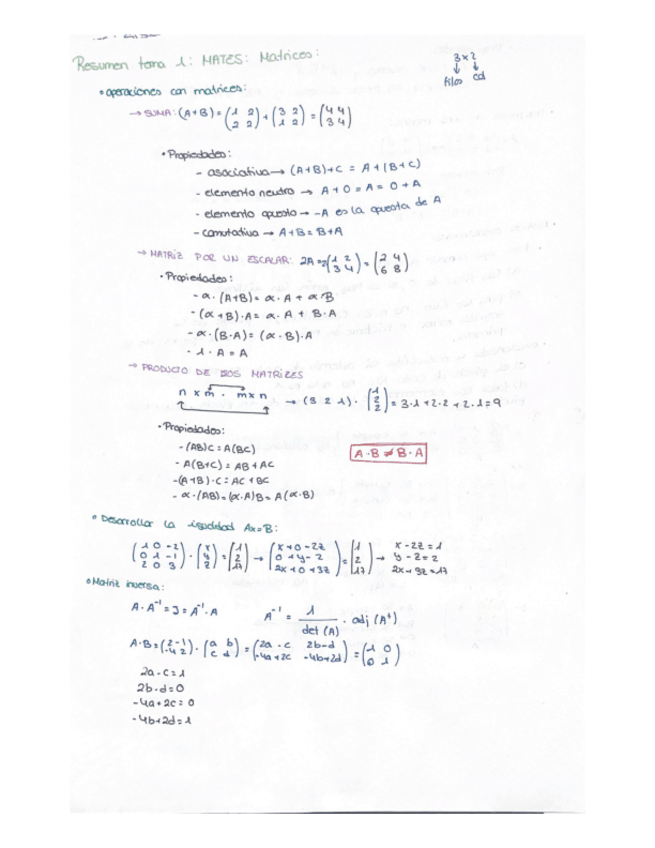 Resumen tema 1: MATES: Matrices:
3 x 2
filas col
• operaciones con matrices:
→ SUMA: (A+B) = (1 2 / 2 2) + (3 2 / 1 2) = (4 4 / 3 4)
• Propiedades:
- asociativa → (A+B)+C = A+(B+C)
- elemento neutro → A+0 = A = 0+A
- elemento opuesto → -A es la opuesta de A
- conmutativa → A+B = B+A
→ MATRIZ POR UN ESCALAR: 2A = 2(1 2 / 3 4) = (2 4 / 6 8)
• Propiedades:
- α·(A+B) = α·A + α·B
- (α+B)·A = α·A + B·A
- α·(B·A) = (α·B)·A
- 1·A = A
→ PRODUCTO DE DOS MATRIZES
n x m · m x n → (3 2 1) · (1 / 2 / 2) = 3·1 + 2·2 + 2·1 = 9
• Propiedades:
- (AB)C = A(BC)
A·B ≠ B·A
- A(B+C) = AB + AC
- (A+B)·C = AC + BC
- α·(AB) = (α·A)B = A(α·B)
• Desarrollar la igualdad Ax=B:
(1 0 -2 / 0 1 -1 / 2 0 3) · (x / y / z) = (1 / 2 / 17) → (x+0-2z / 0+y-2 / 2x+0+3z) = (1 / 2 / 17) → x-2z=1
y-z=2
2x+3z=17
• Matriz inversa:
A·A⁻¹ = J = A⁻¹·A A⁻¹ = 1 / det (A) · adj (Aᵗ)
A·B = (2 -1 / -4 2) · (a b / c d) = (2a-c 2b-d / -4a+2c -4b+2d) = (1 0 / 0 1)
2a-c=1
2b-d=0
-4a+2c=0
-4b+2d=1